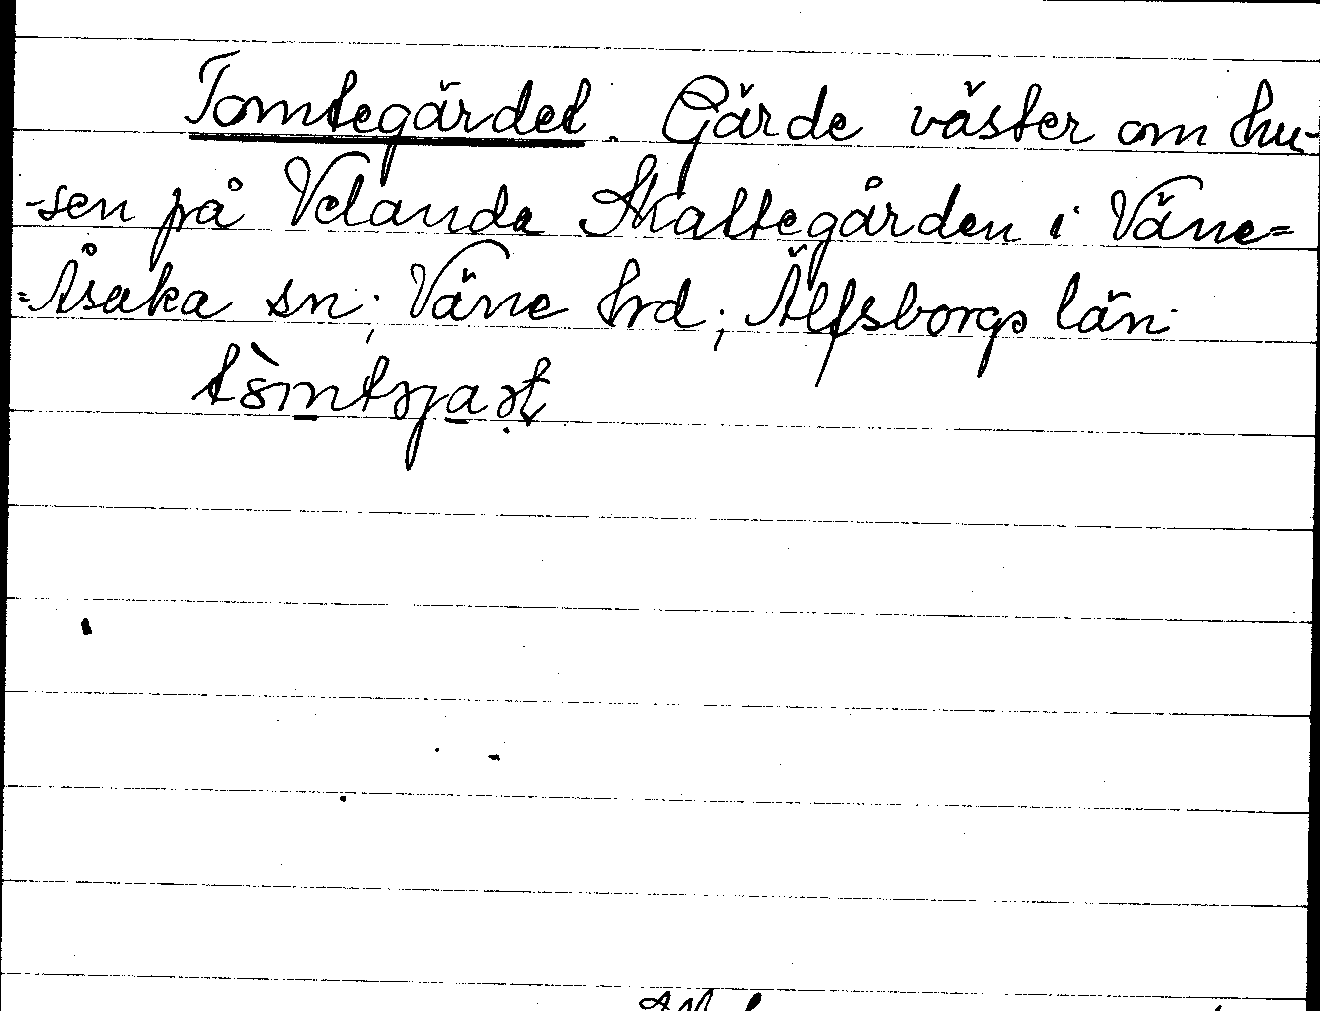 Tomtegärdet. Gärde väster om hu-
-sen på Velanda Skattegården i Väne=
=Åsaka sn; Väne hrd; Älfsborgs län